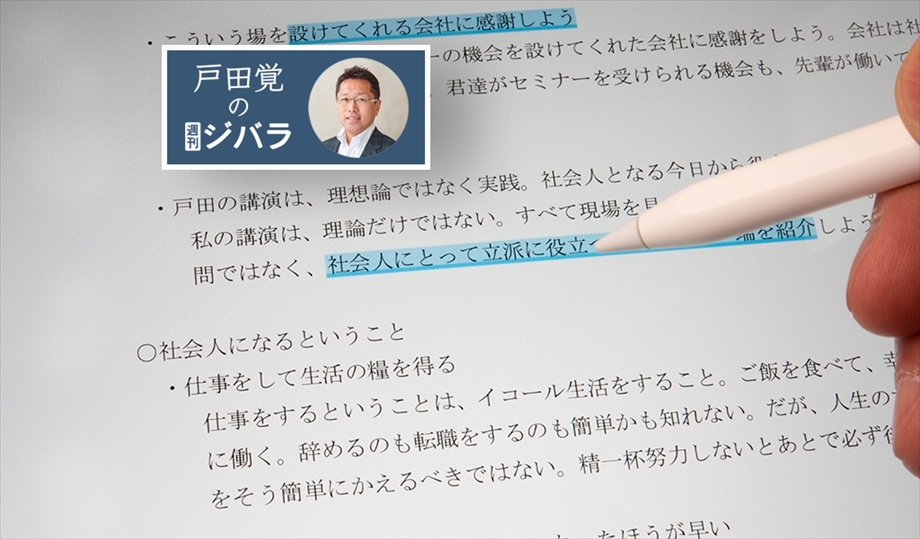 ・こういう場を設けてくれる会社に感謝しよう
ーの機会を設けてくれた会社に感謝をしよう。会社は社
君達がセミナーを受けられる機会も、先輩が働いて
戸田覚
の
週刊
ジバラ
・戸田の講演は、理想論ではなく実践。社会人となる今日から
私の講演は、理論だけではない。すべて現場を見
問ではなく、社会人にとって立派に役立つ を紹介しよう
○社会人になるということ
・仕事をして生活の糧を得る
仕事をするということは、イコール生活をすること。ご飯を食べて、幸
に働く。辞めるのも転職をするのも簡単かも知れない。だが、人生の
をそう簡単にかえるべきではない。精一杯努力しないとあとで必ず
たほうが早い